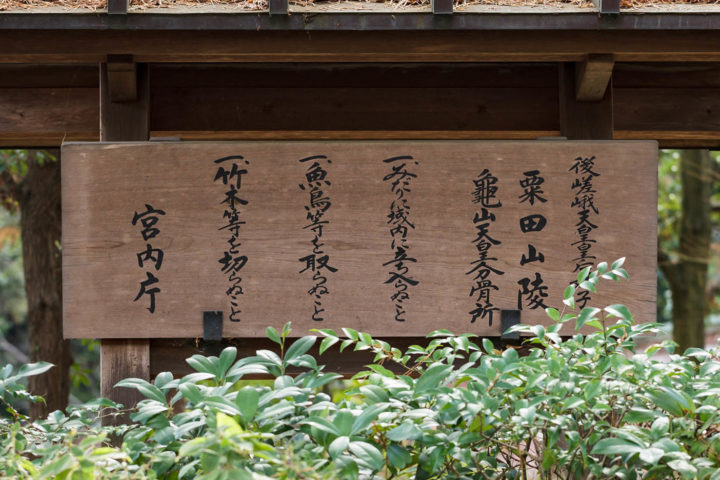 後嵯峨天皇皇后子
粟田山陵
龜山天皇分骨所
一、みだりに域内に立入らぬこと
一、魚鳥等を取らぬこと
一、竹木等を切らぬこと
宮内庁